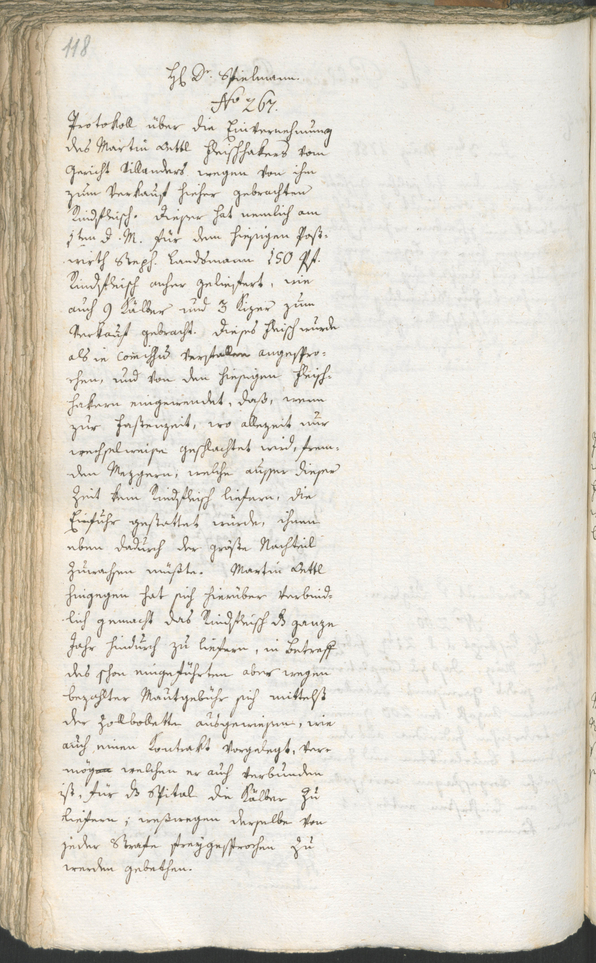 118
H. Dr. Spielmann.
No 267.
Protokoll über die Einvernehmung
des Martin Oettl Fleischhakers vom
Gericht Villanders wegen von ihm
zum Verkauf hieher gebrachten
Rindfleisch. Dieser hat nemlich am
ten d. M. für dem hiesigen Post-
wirth Steph. Landsmann 150 Pf.
Rindfleisch anher geliefert, wie
auch 9 Kälber und 3 Kizer zum
Verkauf gebracht. Dieses Fleisch wurde
als in angespro-
chen, und von den hiesigen Fleisch-
hakern eingewendet, daß, wenn
zur Fastenzeit, wo allezeit nur
wechselweise geschlachtet wird, frem-
den Mezgern, welche ausser dieser
Zeit kein Rindfleisch liefern, die
Einfuhr gestattet würde, ihnen
eben dadurch der größte Nachteil
zuwachsen müßte. Martin Oettl
hingegen hat sich hierüber verbind-
lich gemacht das Rindfleisch ganze
Jahr hindurch zu liefern, in Betreff
des schon eingeführten aber wegen
bezahlter Mautgebühr sich mittelst
der Zollbolette ausgewiesen, wie
auch einen Kontrakt vorgelegt, ver-
mög welchen er auch verbunden
ist, für Spital die Kälber zu
liefern; weßwegen derselbe von
jeder Strafe freygesprochen zu
werden gebethen.